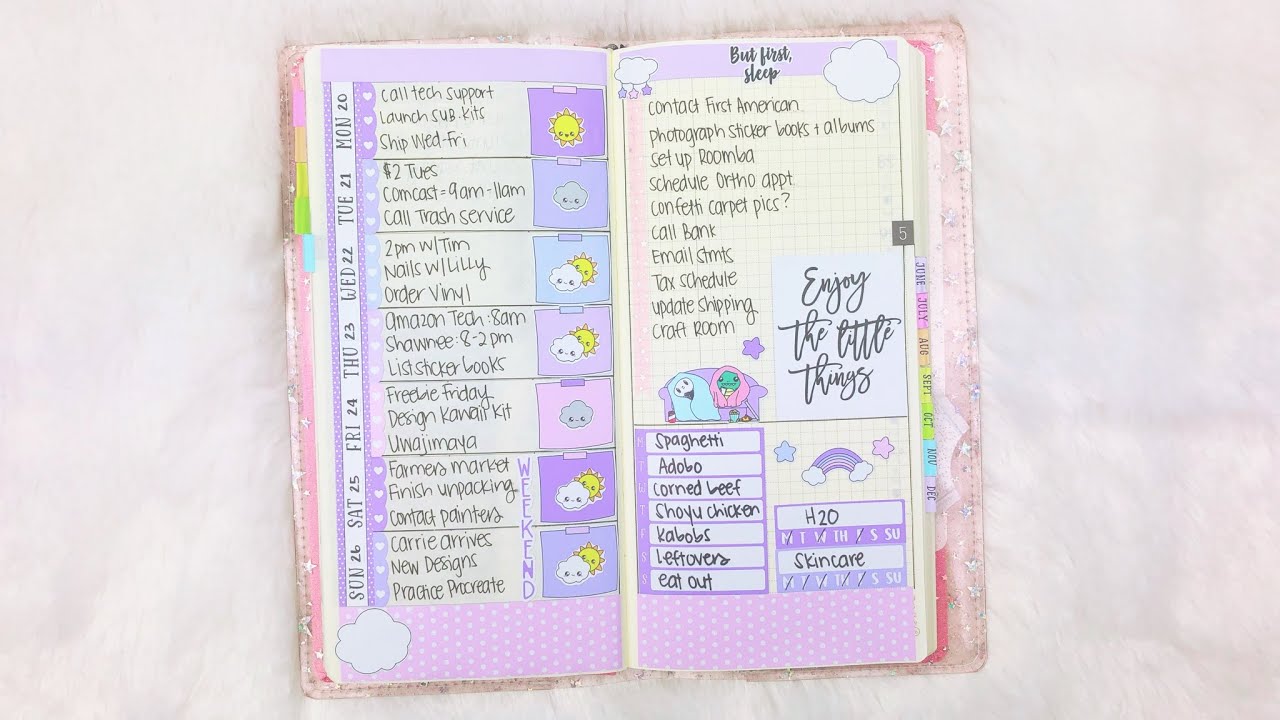 MON 20
Call tech support
Launch SUB. Kits
Ship Wed-Fri
TUE 21
$2 Tues
Comcast = 9am-11am
Call Trash Service
WED 22
2pm W/Tim
Nails W/Lilly
Order Vinyl
THU 23
Amazon Tech: 8am
Shawnee: 8-2pm
List sticker books
FRI 24
Freebie Friday
Design Kawaii Kit
Uwajimaya
SAT 25
Farmers market
Finish unpacking
Contact painters
SUN 26
Carrie arrives
New Designs
Practice Procreate
WEEKEND
But first,
sleep
contact First American
photograph sticker books + albums
set up Roomba
schedule Ortho appt
Confetti carpet pics?
Call Bank
Email Stmts
Tax schedule
update shipping
Craft Room
5
Enjoy
the little
things
M Spaghetti
T Adobo
W Corned beef
T Shoyu chicken
F Kabobs
S Leftovers
S eat out
H2O
M T W TH F S SU
Skincare
M T W TH F S SU
JUNE
JULY
AUG
SEPT
OCT
NOV
DEC